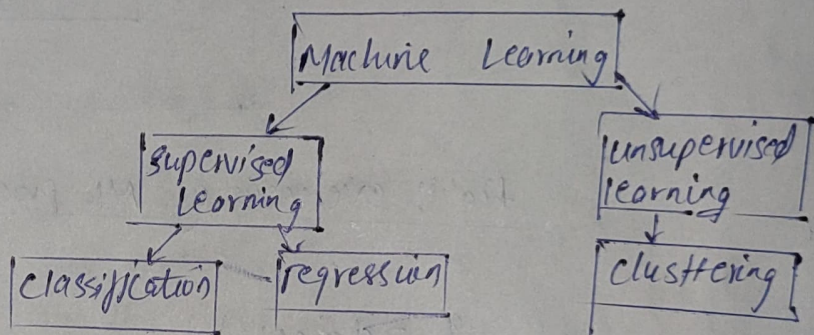 Machine Learning
supervised
Learning
unsupervised
learning
classification
regression
clusttering